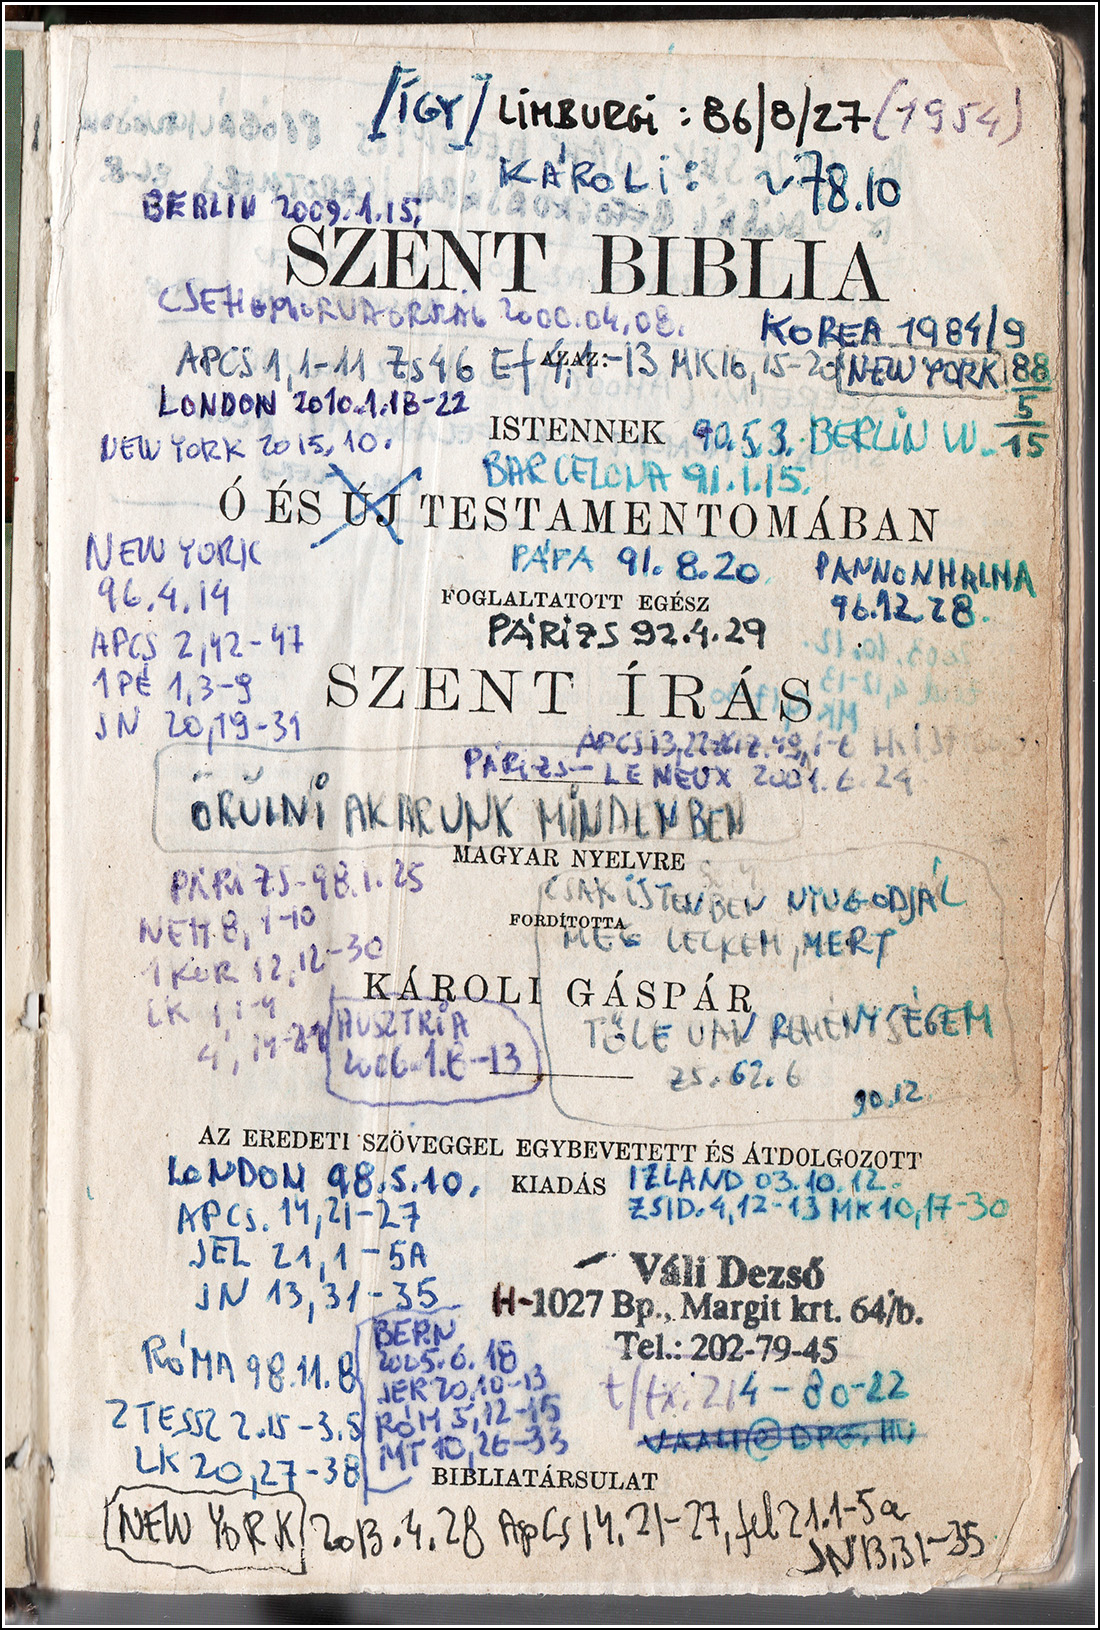 [ÍGY] LIMBURGI : 86/8/27 (1954)
KÁROLI: ~78.10
BERLIN 2009.1.15.
SZENT BIBLIA
2000.04.08.
KOREA 1984/9
AZAZ:
APCS 1,1-11 ZS 46 Ef 4,1-13 MK 16,15-20
NEW YORK 88
5
15
LONDON 2010.1.18-22
ISTENNEK
90.5.3. BERLIN W.
NEW YORK 2015.10.
BARCELONA 91.1.15.
Ó ÉS ÚJ TESTAMENTOMÁBAN
NEW YORK
96.4.14
APCS 2,42-47
1PÉ 1,3-9
JN 20,19-31
PÁPA 91.8.20.
PANNONHALMA
96.12.28.
FOGLALTATOTT EGÉSZ
PÁRIZS 92.4.29
SZENT ÍRÁS
PÁRIZS— LE NEUX 2001.6.24
ÖRÜLNI AKARUNK MINDENBEN
MAGYAR NYELVRE
PÁRIZS-98.1.25
NEH 8, 1-10
1KOR 12,12-30
LK 1,1-4
4, 14-21
CSAK ISTENBEN NYUGODJÁL
FORDÍTOTTA
MEG LELKEM, MERT
KÁROLI GÁSPÁR
TŐLE VAN REMÉNYSÉGEM
ZS. 62.6
90.12.
AUSZTRIA
2006.1.8-13
AZ EREDETI SZÖVEGGEL EGYBEVETETT ÉS ÁTDOLGOZOTT
KIADÁS
LONDON 98.5.10.
APCS. 14,21-27
JEL 21,1-5A
JN 13,31-35
IZLAND 03.10.12.
ZSID. 4,12-13 MK 10,17-30
Váli Dezső
H-1027 Bp., Margit krt. 64/b.
Tel.: 202-79-45
t/fx: 214-80-22
RÓMA 98.11.8
2 TESSZ 2.15-3.5
LK 20,27-38
BERN
2005.6.18
JER 20,10-13
RÓM 5,12-15
MT 10,26-33
BIBLIATÁRSULAT
NEW YORK 2013.4.28 ApCs 14.21-27, jel 21.1-5a
JN 13,31-35